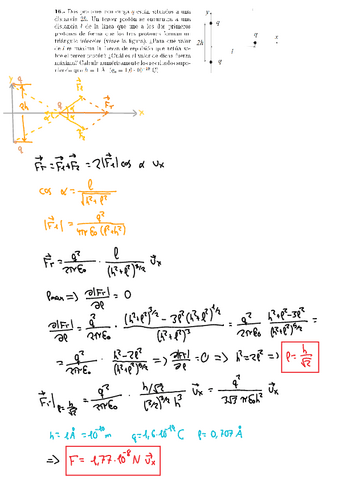 16.- Dos protones con carga q están situados a una
distancia 2h. Un tercer protón se encuentra a una
distancia l de la línea que une a los dos primeros
protones de forma que los tres protones forman un
triángulo isósceles (véase la figura). ¿Para qué valor
de l es máxima la fuerza de repulsión que actúa so-
bre el tercer protón? ¿Cuál es el valor de dicha fuerza
máxima? Calcule numéricamente los resultados supo-
niendo que h = 1 Å (qₚ = 1,6 · 10⁻¹⁹ C)
y q
2h l q x
q
y
q
2h l q α α F⃗₁ F⃗₂ F⃗r x
q
F⃗r = F⃗₁ + F⃗₂ = 2|F⃗₁| cos α uₓ
cos α = l / √(h²+l²)
|F⃗₁| = q² / (4πε₀ (l²+h²))
F⃗r = q²/(2πε₀) · l/(h²+l²)^(3/2) u⃗ₓ
lmax => ∂|Fr|/∂l = 0
∂|Fr|/∂l = q²/(2πε₀) · ((h²+l²)^(3/2) − 3l²(h²+l²)^(1/2))/(h²+l²)³ = q²/(2πε₀) · (h²+l²−3l²)/(h²+l²)^(5/2) =
= q²/(2πε₀) · (h²−2l²)/(h²+l²)^(5/2) => ∂Fr/∂l = 0 => h² = 2l² => l = h/√2
F⃗r|l=h/√2 = q²/(2πε₀) · (h/√2)/((3/2)^(3/2) h³) u⃗ₓ = q²/(3√3 πε₀h²) u⃗ₓ
h = 1Å = 10⁻¹⁰ m q = 1,6·10⁻¹⁹ C l = 0,707 Å
=> F = 1,77·10⁻⁸ N u⃗ₓ